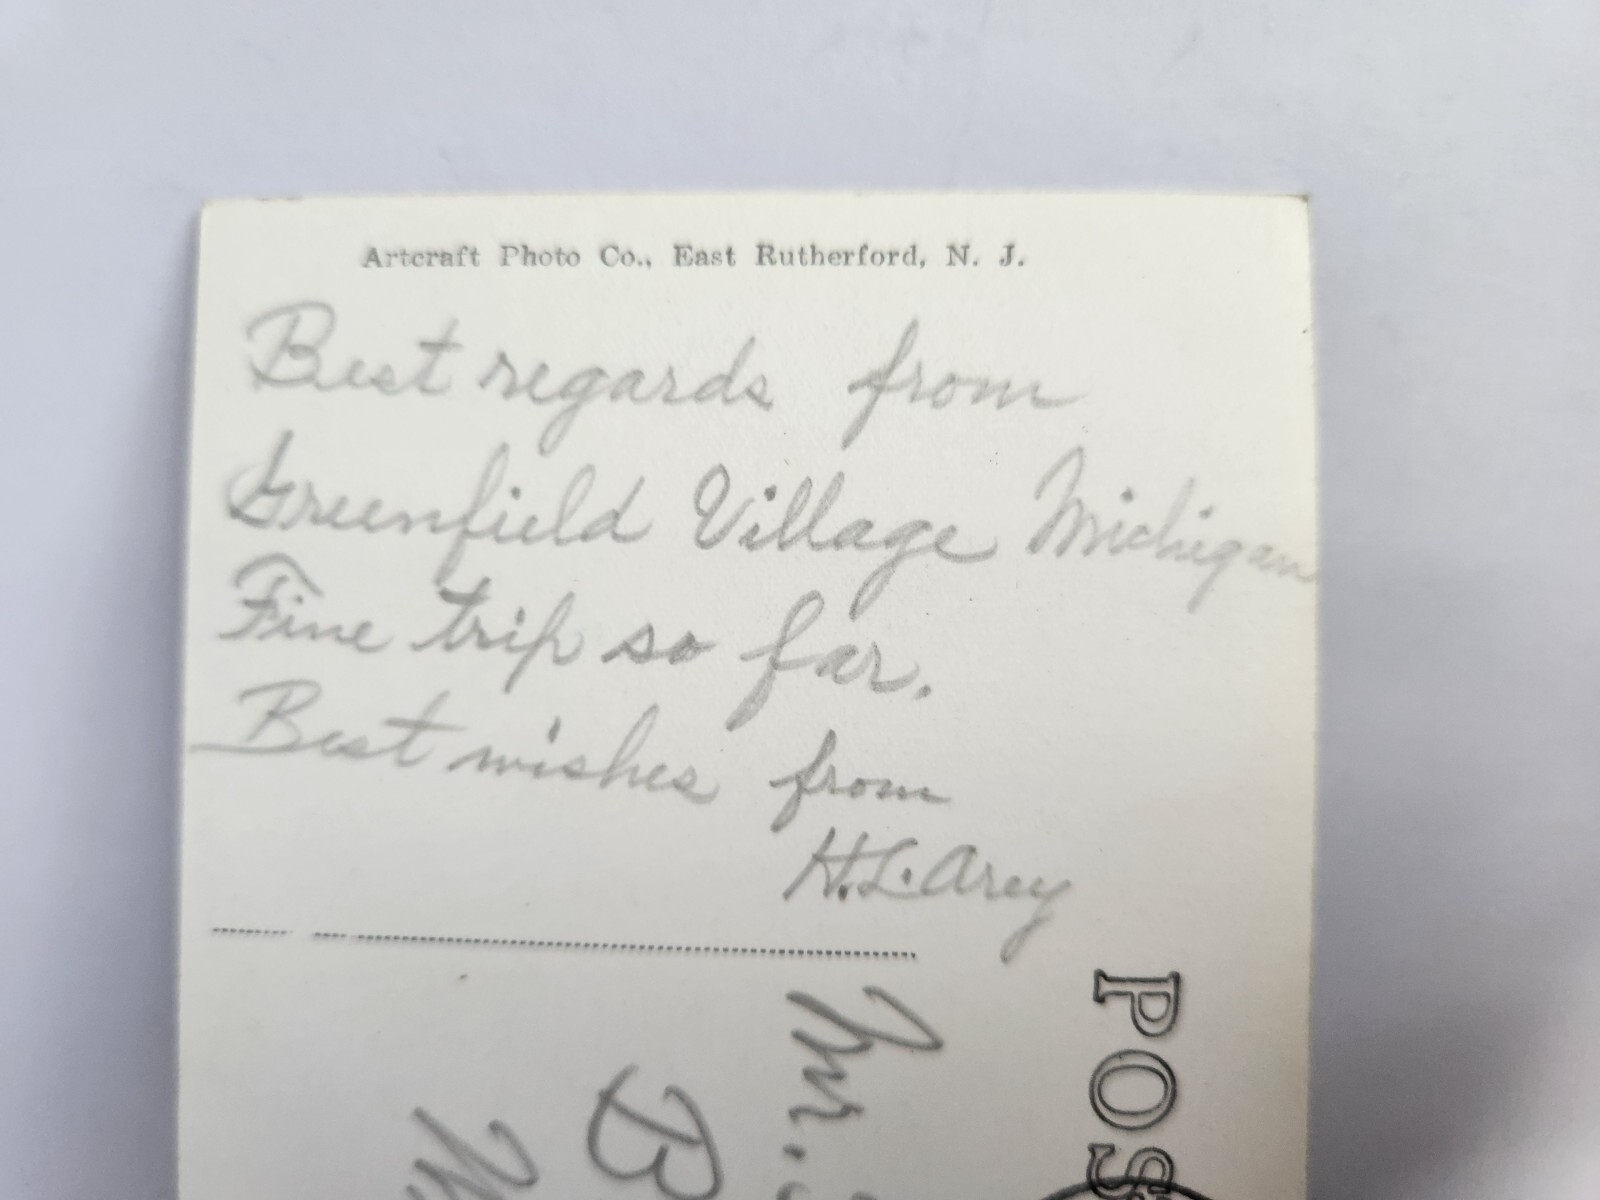 Artcraft Photo Co., East Rutherford, N. J.
Best regards from
Greenfield Village Michigan
Fine trip so far.
Best wishes from
H.L. Arey
POS
Mr.
B